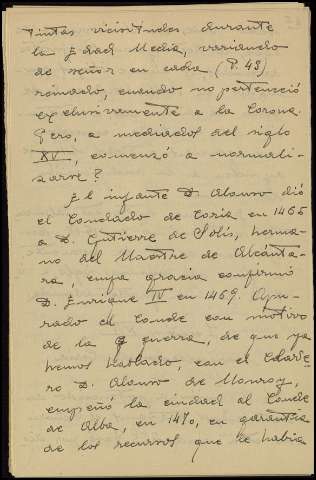 tintas vicisitudes durante
la Edad Media, variando
de señor en cada (P. 43)
reinado, cuando no perteneció
exclusivamente a la Corona.
Pero, a mediados del siglo
XV, comenzó a normali-
zarse?
El infante D. Alonso dió
el Condado de Coria en 1465
a D. Gutierre de Solís, herma-
no del Maestre de Alcánta-
ra, cuya gracia confirmó
D. Enrique IV en 1469. Apu-
rado el Conde con motivo
de la guerra, de que ya
hemos hablado, con el Clave-
ro D. Alonso de Monroy,
empeñó la ciudad al Conde
de Alba, en 1470, en garantía
de los recursos que le había